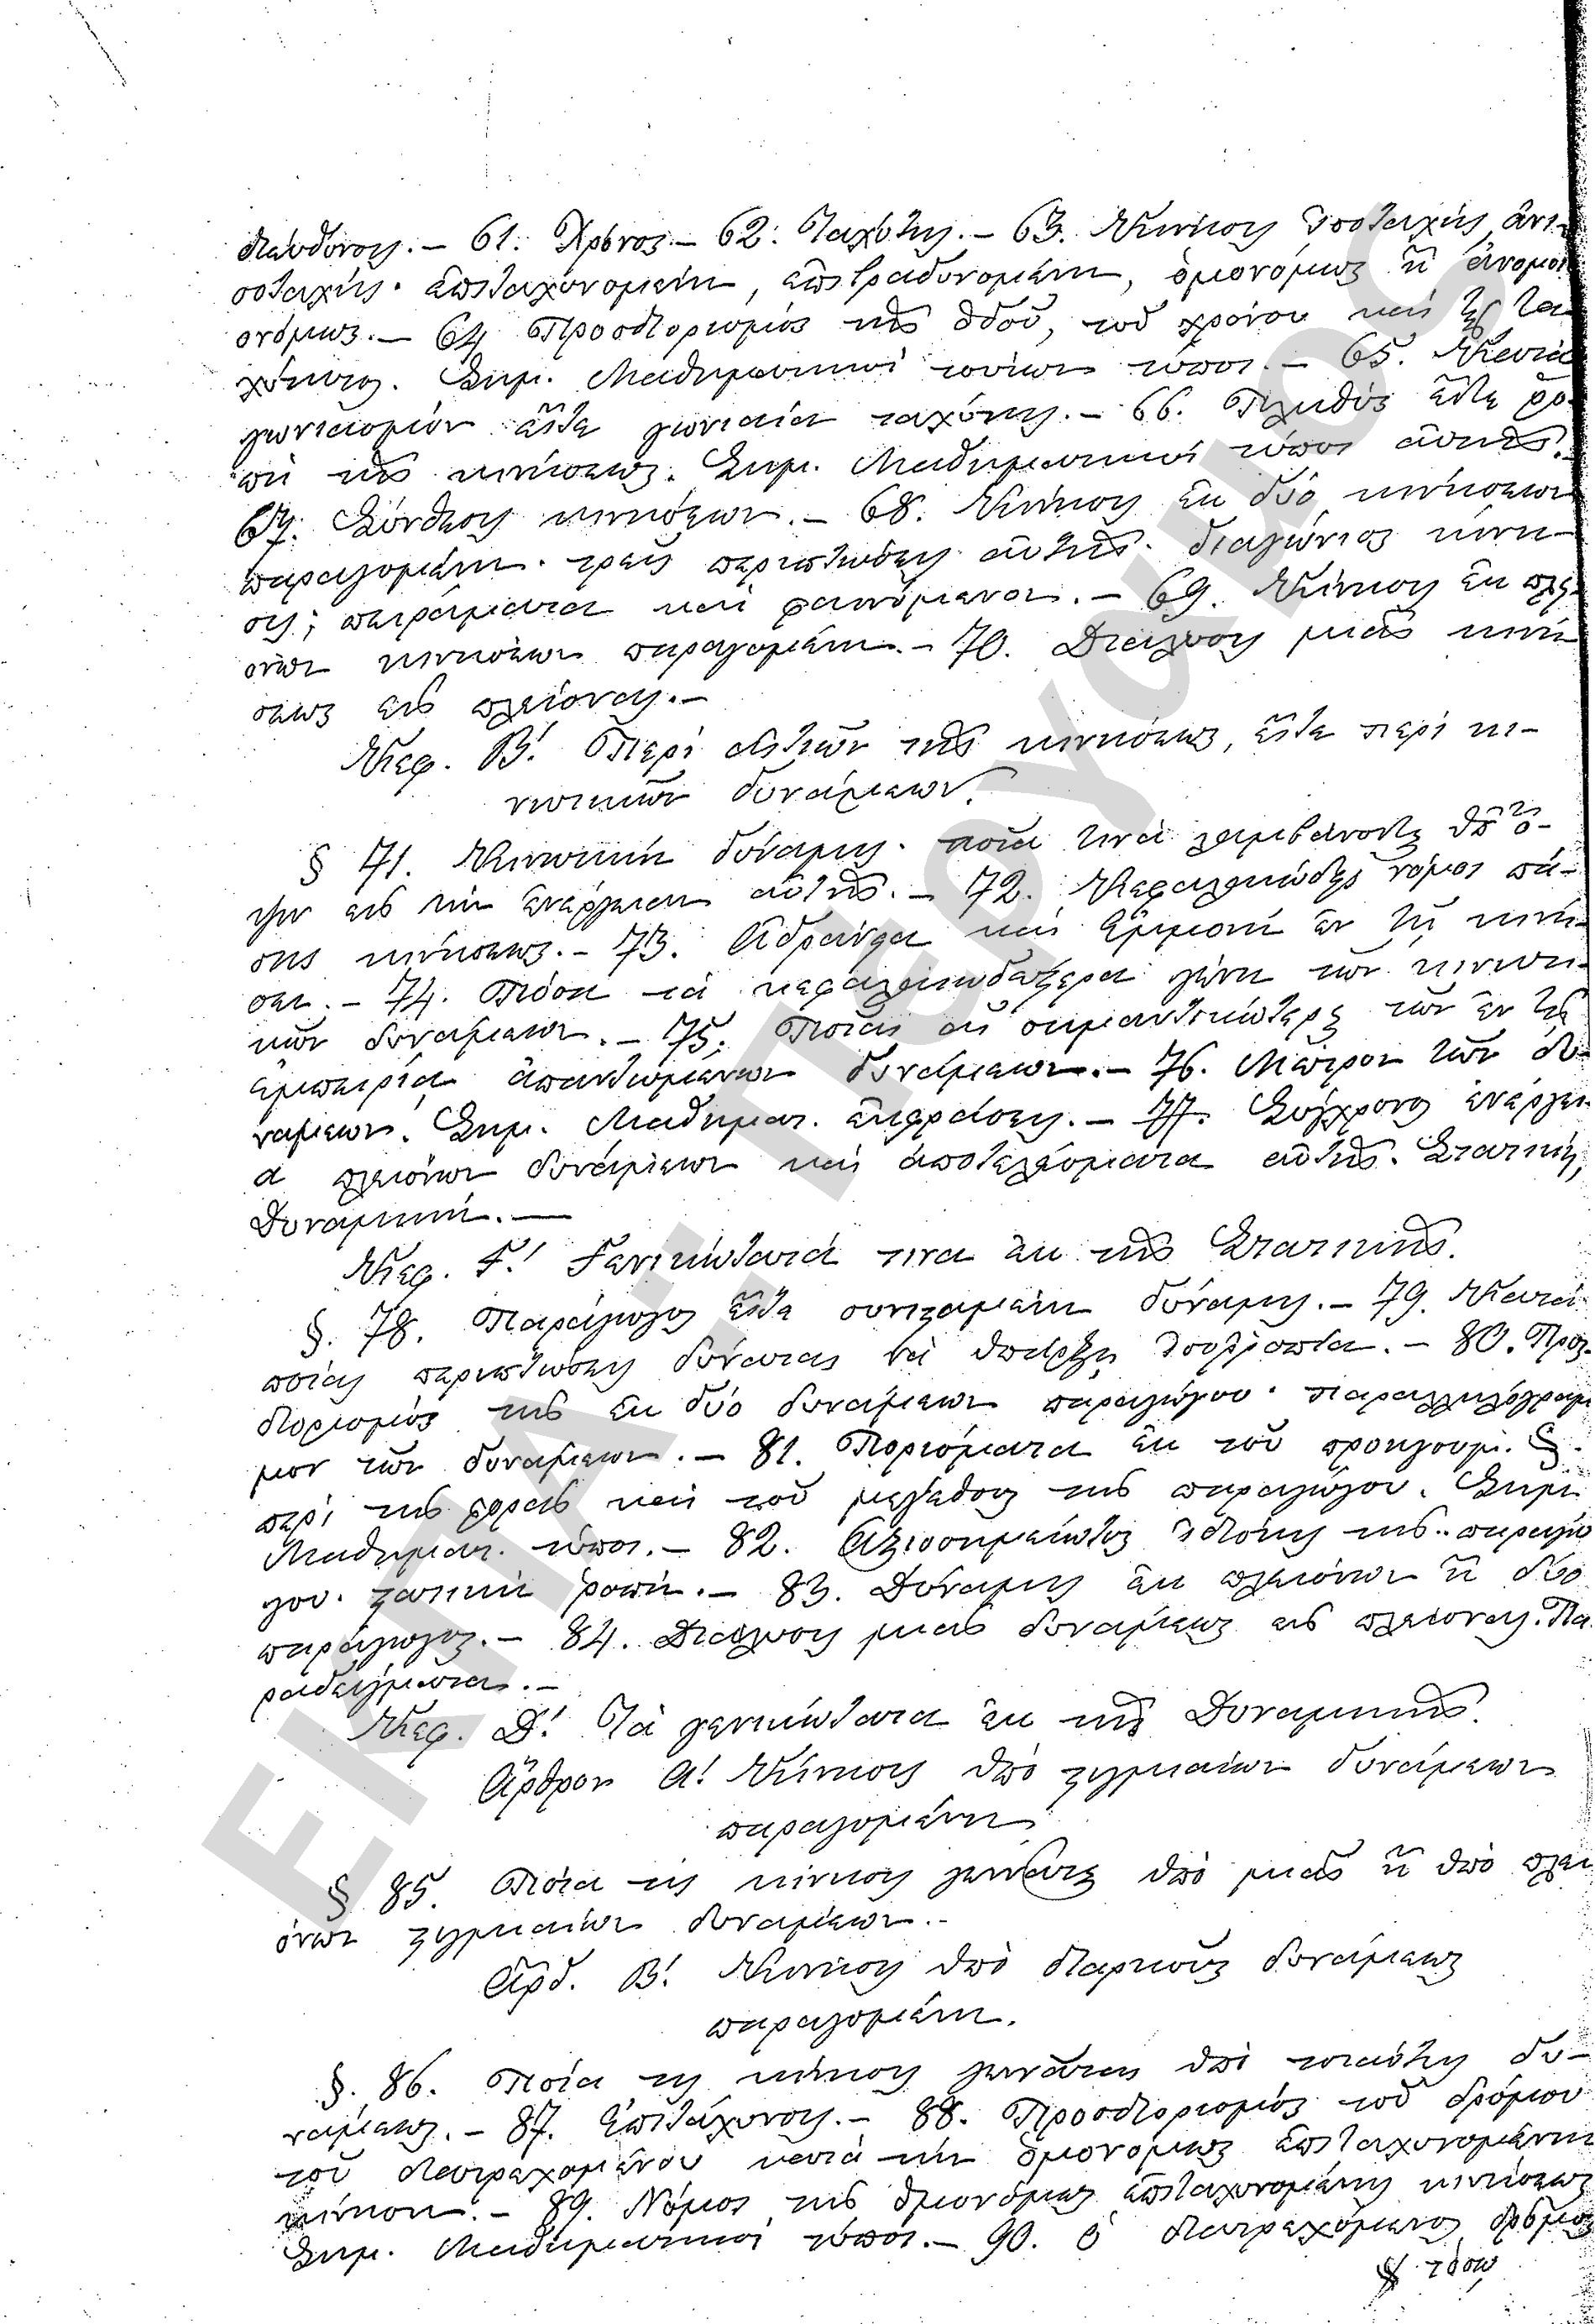 διεύθυνσις.— 61. Χρόνος.— 62. Ταχύτης.— 63. Κίνησις ἰσοταχής, ἀνι-
σοταχής· ἐπιταχυνομένη, ἐπιβραδυνομένη, ὁμονόμως ἢ ἀνομοι
ονόμως.— 64 Προσδιορισμός τῆς ὁδοῦ, τοῦ χρόνου καί τῆς τα-
χύτητος. Σημ. Μαθηματικοί τούτων τύποι.— 65. Κατά
γωνιασμόν εἴτε γωνιαία ταχύτης.— 66. Πληθύς εἴτε ῥο-
πή τῆς κινήσεως. Σημ. Μαθηματικοί τύποι αὐτῆς.—
67. Σύνθεσις κινήσεων.— 68. Κίνησις ἐκ δύο κινήσεων
παραγομένη· τρεῖς περιπτώσεις αὐτῆς· διαγώνιος κίνη-
σις; πειράματα καί φαινόμενα.— 69. Κίνησις ἐκ πλει
όνων κινήσεων παραγομένη.— 70. Διάλυσις μιᾶς κινή
σεως εἰς πλείονας.—
Κεφ. Β! Περί αἰτιῶν τῆς κινήσεως, εἴτε περί κι-
νητικῶν δυνάμεων.
§ 71. Κινητική δύναμις· ποῖα τινά λαμβάνονται ὑπ' ὄ-
ψιν εἰς τήν ἐνέργειαν αὐτῆς.— 72. Κεφαλαιώδης νόμος πά-
σης κινήσεως.— 73. Ἀδράνεια καί ἐμμονή ἐν τῇ κινή-
σει.— 74. Πόσα τά κεφαλαιωδέστερα γένη τῶν κινητι-
κῶν δυνάμεων.— 75. Ποῖαι αἱ σημαντικώτεραι τῶν ἐν τῇ
ἐμπειρίᾳ ἀπαντωμένων δυνάμεων.— 76. Μέτρον τῶν δυ-
νάμεων. Σημ. Μαθηματ. ἐκφράσεις.— 77. Σύγχρονος ἐνέργει
α πλειόνων δυνάμεων καί ἀποτελέσματα αὐτῆς. Στατική,
Δυναμική.—
Κεφ. Γ! Γενικώτατά τινα ἐκ τῆς Στατικῆς.
§. 78. Παράγωγος εἴτε συνισαμένη δύναμις.— 79. Κατά
ποίας περιπτώσεις δύναται νά ὑπάρξῃ ἰσοῤῥοπία.— 80. Προσ-
διορισμός τῆς ἐκ δύο δυνάμεων παραγώγου· παραλληλόγραμ
μον τῶν δυνάμεων.— 81. Πορίσματα ἐκ τοῦ προηγουμ. §.
περί τῆς φορᾶς καί τοῦ μεγέθους τῆς παραγώγου. Σημ.
Μαθηματ. τύποι.— 82. Ἀξιοσημείωτος ἰδιότης τῆς παραγώ
γου· στατική ῥοπή.— 83. Δύναμις ἐκ πλειόνων ἢ δύο
παράγωγος.— 84. Διάλυσις μιᾶς δυνάμεως εἰς πλείονας. Πα
ραδείγματα.—
Κεφ. Δ! Τά γενικώτατα ἐκ τῆς Δυναμικῆς.
Ἄρθρον Α! Κίνησις ὑπό στιγμιαίων δυνάμεων
παραγομένη
§ 85. Ποία τις κίνησις γεννᾶται ὑπό μιᾶς ἢ ὑπό πλει
όνων στιγμιαίων δυνάμεων.-
Ἄρθ. Β! Κίνησις ὑπό διαρκοῦς δυνάμεως
παραγομένη.
§. 86. Ποία τις κίνησις γεννᾶται ὑπό τοιαύτης δυ-
νάμεως.— 87. Ἐπιτάχυνσις.— 88. Προσδιορισμός τοῦ δρόμου
τοῦ διατρεχομένου κατά τήν ὁμονόμως ἐπιταχυνομένην
κίνησιν.— 89. Νόμος τῆς ὁμονόμως ἐπιταχυνομένης κινήσεως
Σημ. Μαθηματικοί τύποι.— 90. ὁ διατρεχόμενος δρόμος
τόσῳ
ΕΚΠΑ - Πέργαμος